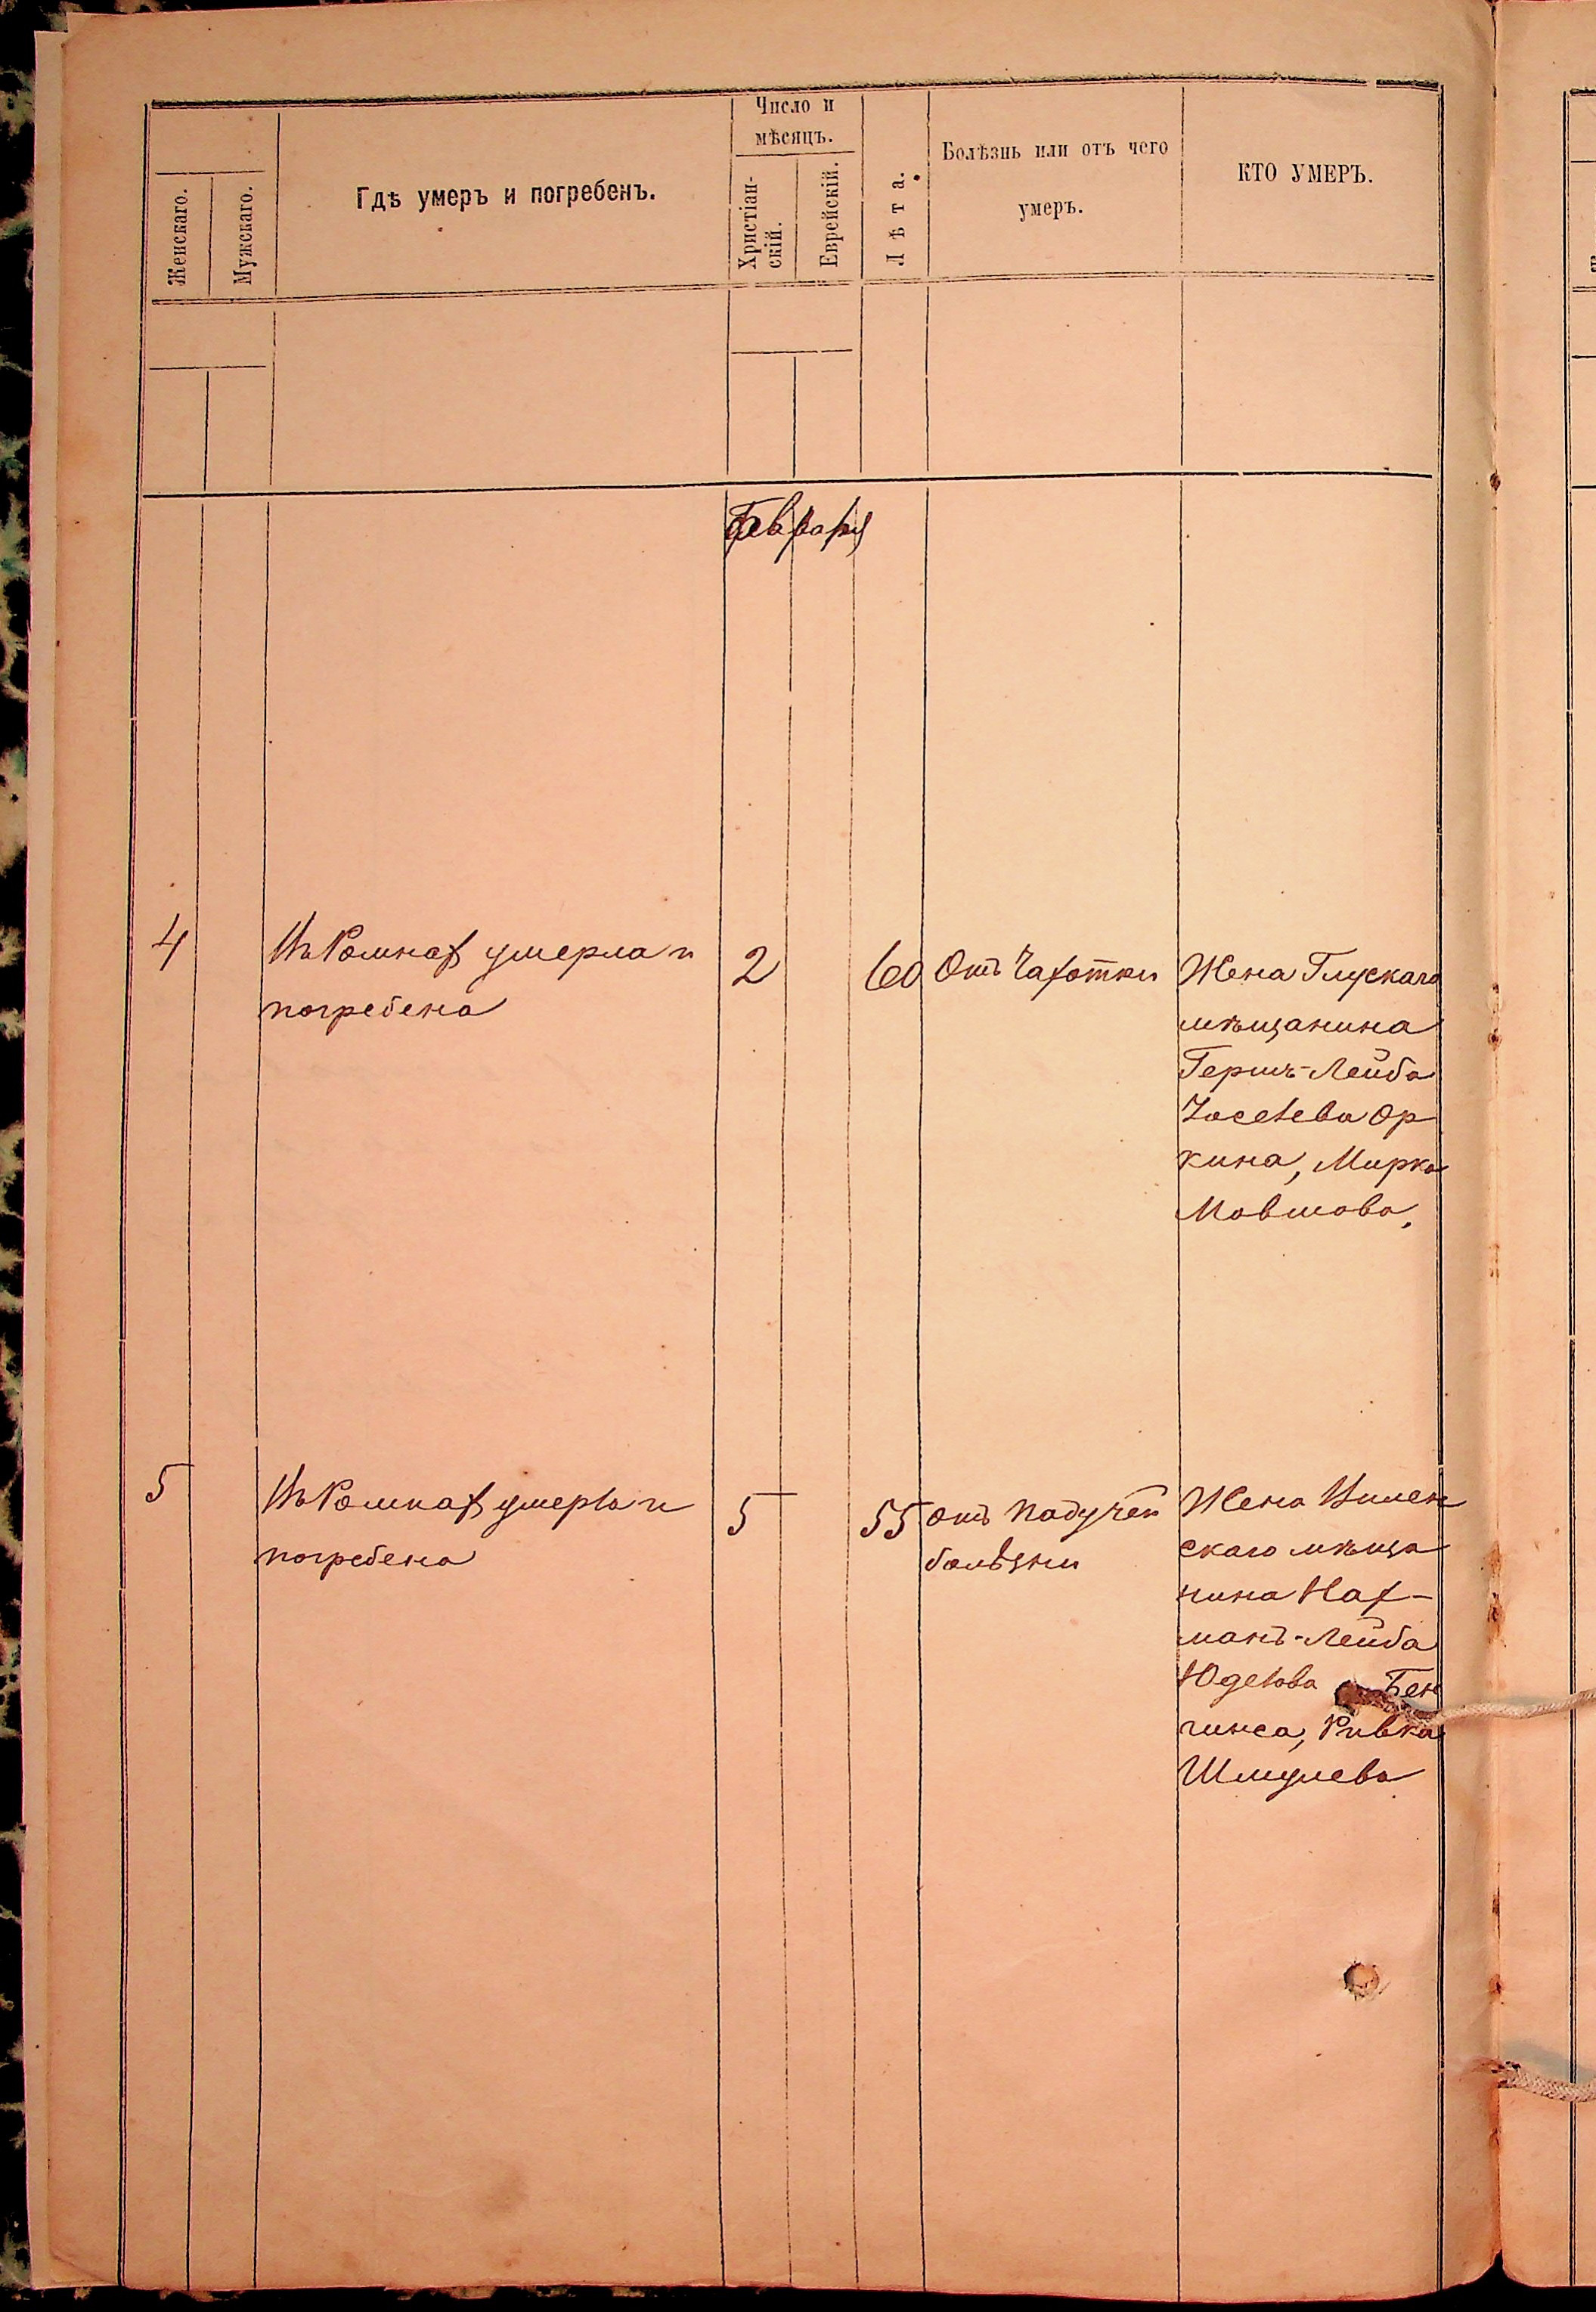 Число и
мѣсяцъ.
Женскаго.
Мужскаго.
Гдѣ умеръ и погребенъ.
Христіан-
скій.
Еврейскій.
Лѣта.
Болѣзнь или отъ чего
умеръ.
КТО УМЕРЪ.
Февраля
4
Въ Ромнах умерла и
погребена
2
60
Отъ Чахотки
Жена Глускаго
мѣщанина
Гершъ-Лейба
Іоселева Ор
кина, Мирка
Мовшова,
5
Въ Ромнах умерла и
погребена
5
55
отъ падучей
болѣзни
Жена
скаго мѣща
нина Нах-
манъ-Лейба
Юделова Бен
гинса, Ривка
Шмулева